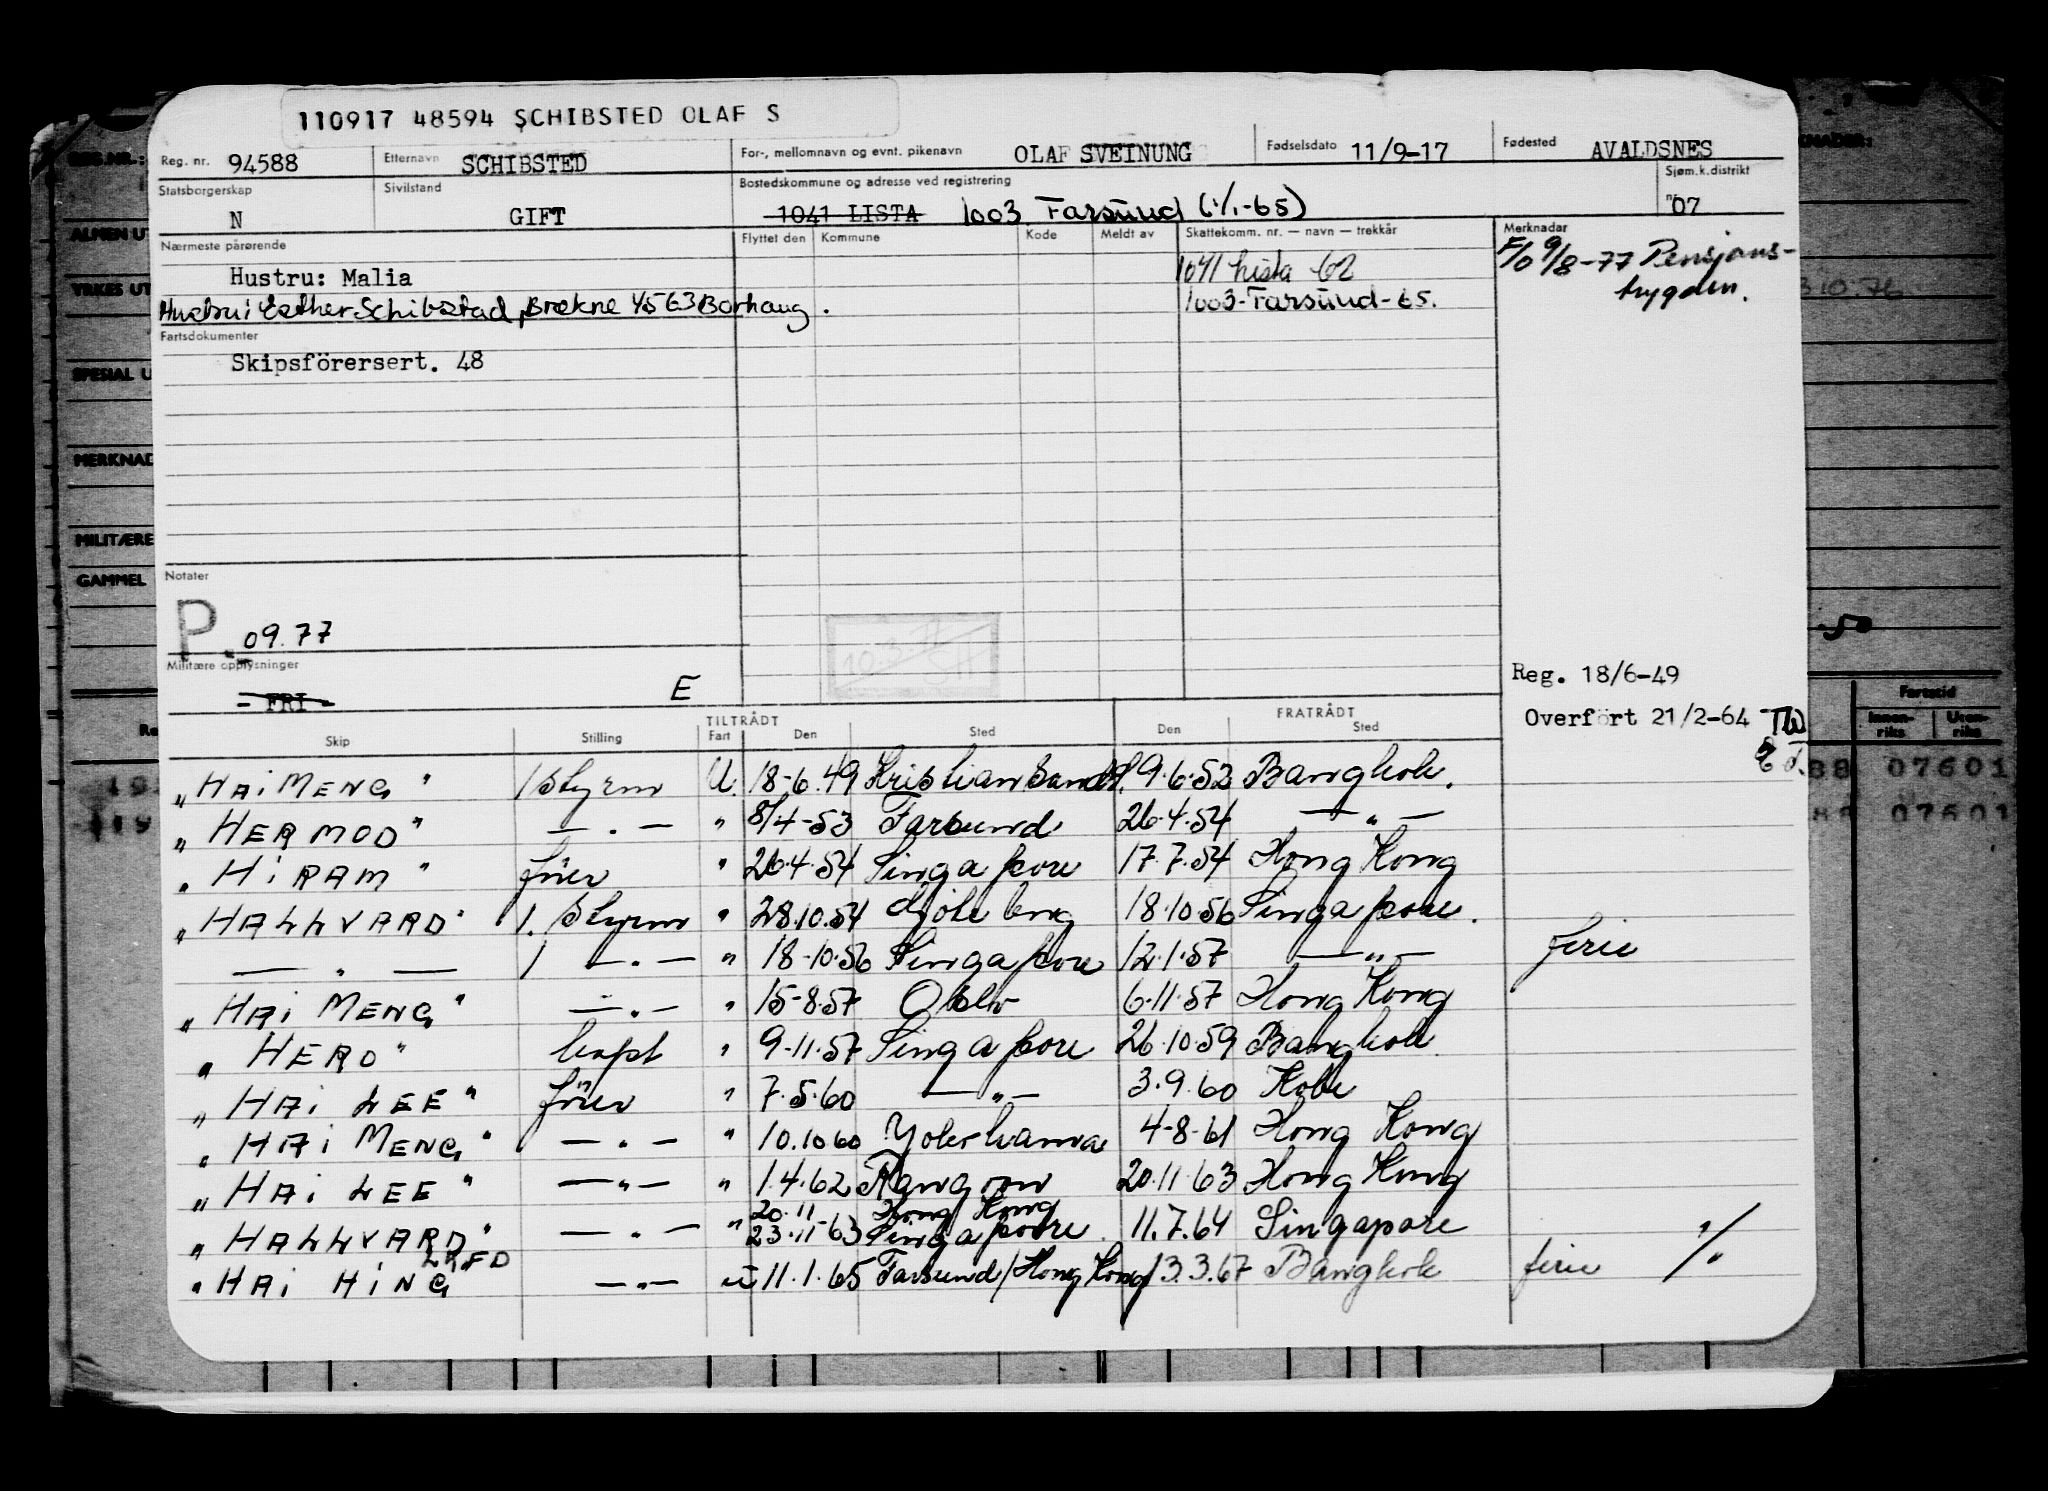 110917 48594 SCHIBSTED OLAF S
Reg. nr. 94588 Etternavn SCHIBSTED For-, mellomnavn og evnt. pikenavn OLAF SVEINUNG Fødselsdato 11/9-17 Fødested AVALDSNES
Statsborgerskap N Sivilstand GIFT Bostedskommune og adresse ved registrering 1041 LISTA 1003 Farsund (1/1-65) Sjøm.k.distrikt 07
Nærmeste pårørende Flyttet den Kommune Kode Meldt av Skattekomm. nr. — navn — trekkår Merknadar
Hustru: Malia 1041 Lista 62 F/O 9/8-77 Pensjons-
Hustru: Esther Schibstad, Brekne 4563 Borhaug. 1003-Farsund-65. trygden.
Fartsdokumenter
Skipsförersert. 48
Notater
P 09.77
Militære opplysninger
- FRI - E
Reg. 18/6-49
Overfört 21/2-64
TILTRÅDT FRATRÅDT
Skip Stilling Fart Den Sted Den Sted
"HAI MENG" 1 Styrm U. 18-6.49 Kristiansand S. 9.6.52 Bangkok.
"HERMOD" — . — " 8/4-53 Farsund 26.4.54 — " —
"HIRAM" förer " 26.4.54 Singapore 17.7.54 Hong Kong
"HALLVARD" 1. Styrm " 28.10.54 18.10.56 Singapore.
— " — 1 — . — " 18-10.56 Singapore 12.1.57 — " — ferie
"HAI MENG" — . — " 15-8.57 Oslo 6.11.57 Hong Kong
"HERO" kapt " 9-11.57 Singapore 26.10.59 Bangkok
"HAI LEE" förer " 7.5.60 — " — 3.9.60 Kobe
"HAI MENG" — . — " 10.10 60 Yokohama 4-8-61 Hong Kong
"HAI LEE" — " — " 1.4.62 Rangoon 20.11 63 Hong Kong
20.11 Hong Kong
"HALLVARD" — . — " 23.11-63 Singapore. 11.7.64 Singapore "/
LKFD
"HAI HING — " — U 11.1.65 Farsund/Hong Kong 13.3.67 Bangkok ferie /"
REG.NR.:
ALMEN UT
YRKES UT
SPESIAL U
MERKNAD
MILITÆRE
GAMMEL
KNADER:
310.76
-50
Fartstid
Innen-
riks
Uten-
riks
88 07601
88 07601